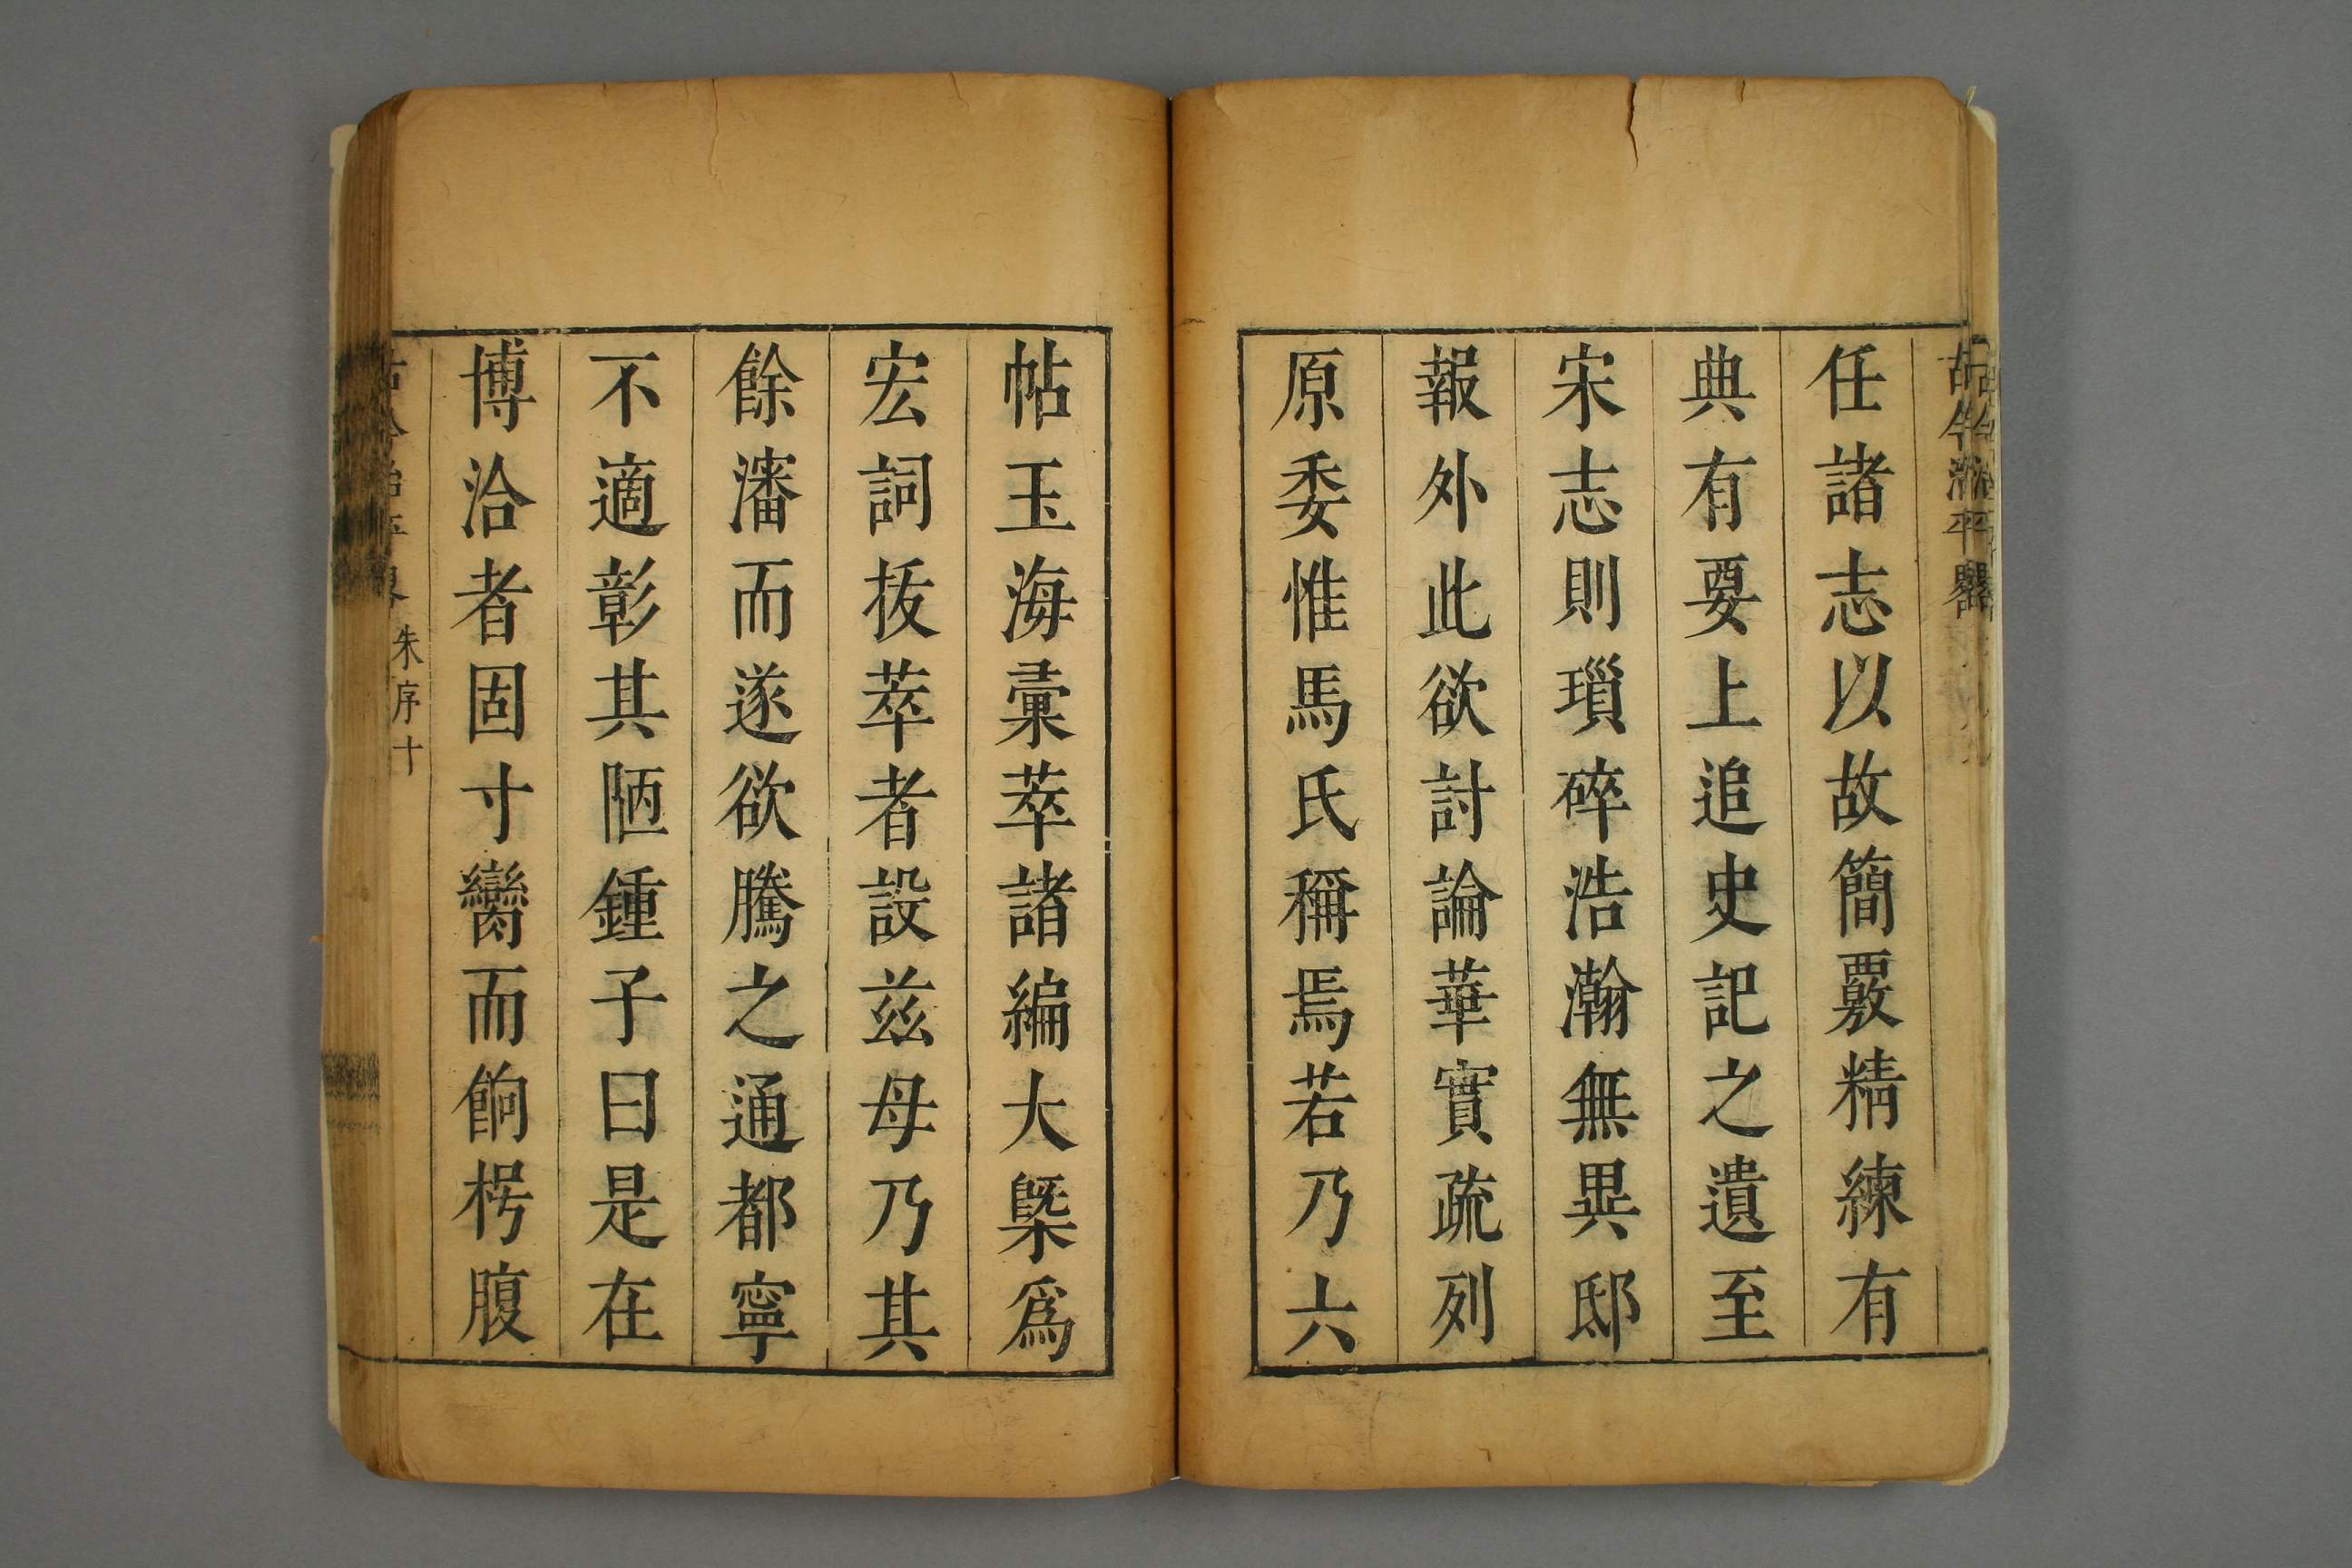 古今治平畧
任諸志以故簡覈精練有
典有要上追史記之遺至
宋志則瑣碎浩瀚無異邸
報外此欲討論華實疏列
原委惟馬氏稱焉若乃六
帖玉海彙萃諸編大槩爲
宏詞拔萃者設兹毋乃其
餘瀋而遂欲騰之通都寧
不適彰其陋鍾子曰是在
博洽者固寸臠而餉枵腹
朱序十